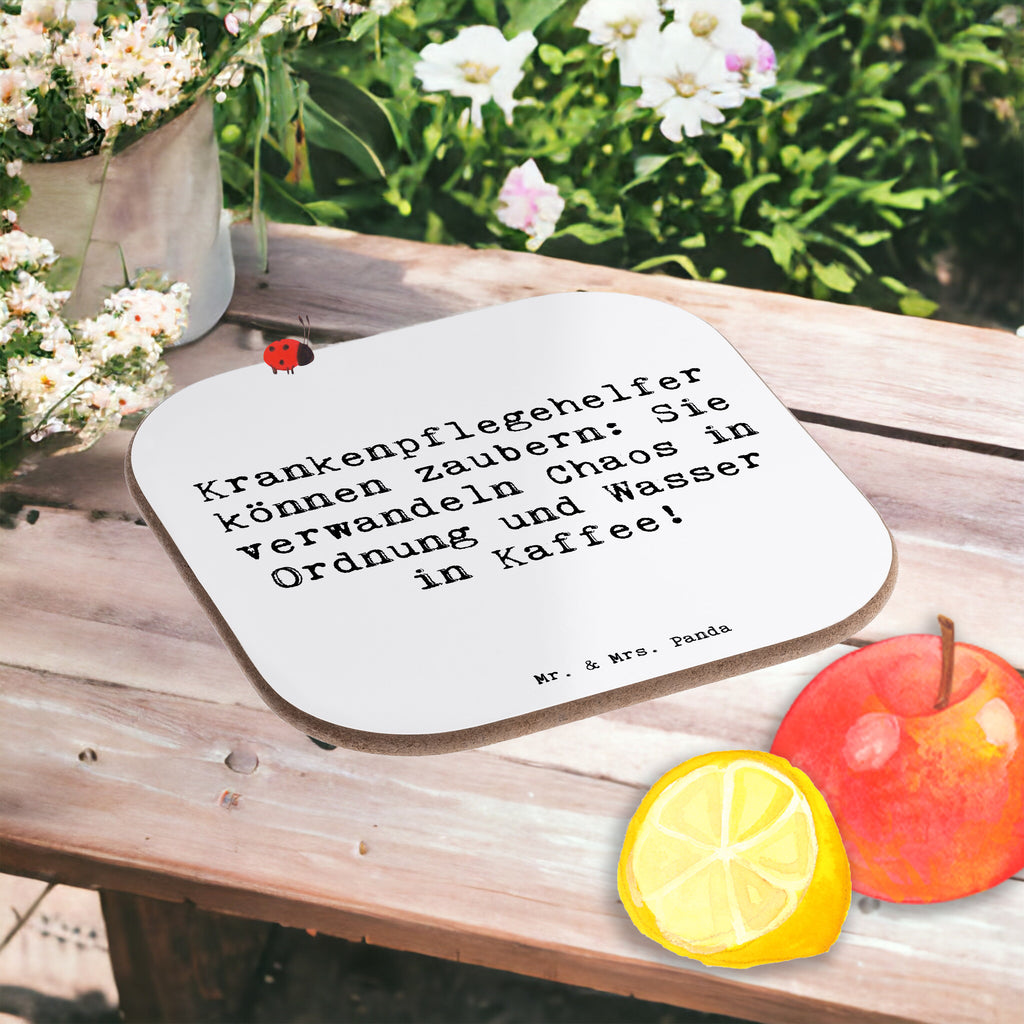 Krankenpflegehelfer
können zaubern: Sie
verwandeln Chaos in
Ordnung und Wasser
in Kaffee!
Mr. & Mrs. Panda